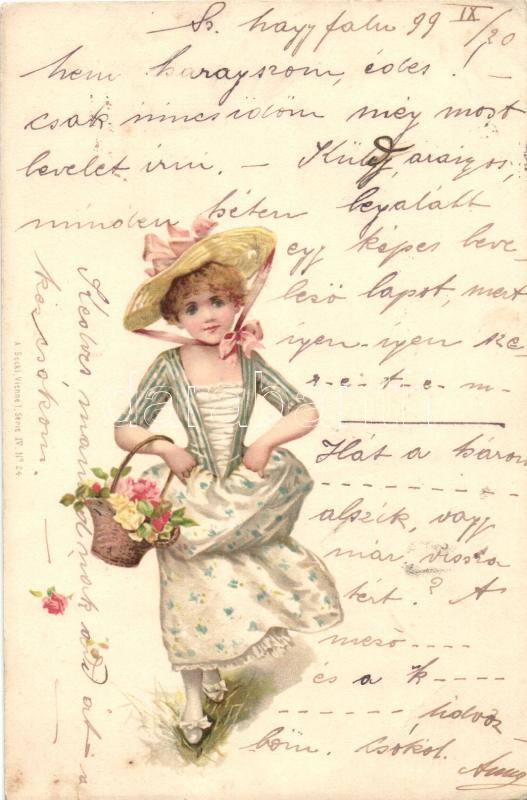 Sz. nagy falu 99 IX/20
nem haragszom, édes! -
csak nincs idöm még most
levelet irni. - Küldj, aranyos,
minden héten legalább
egy képes leve-
lezö lapot, mert
igen-igen sze-
r-e-t-e-m-
Hát a három
alszik, vagy
már vissza
tért? A
mesö----
és a k----
------ üdvöz-
löm. Csókol.
Kedves mamádnak add át a
kézcsókom.
A. Sockl, Vienne I, Serie IV, Nº 24
darabanth